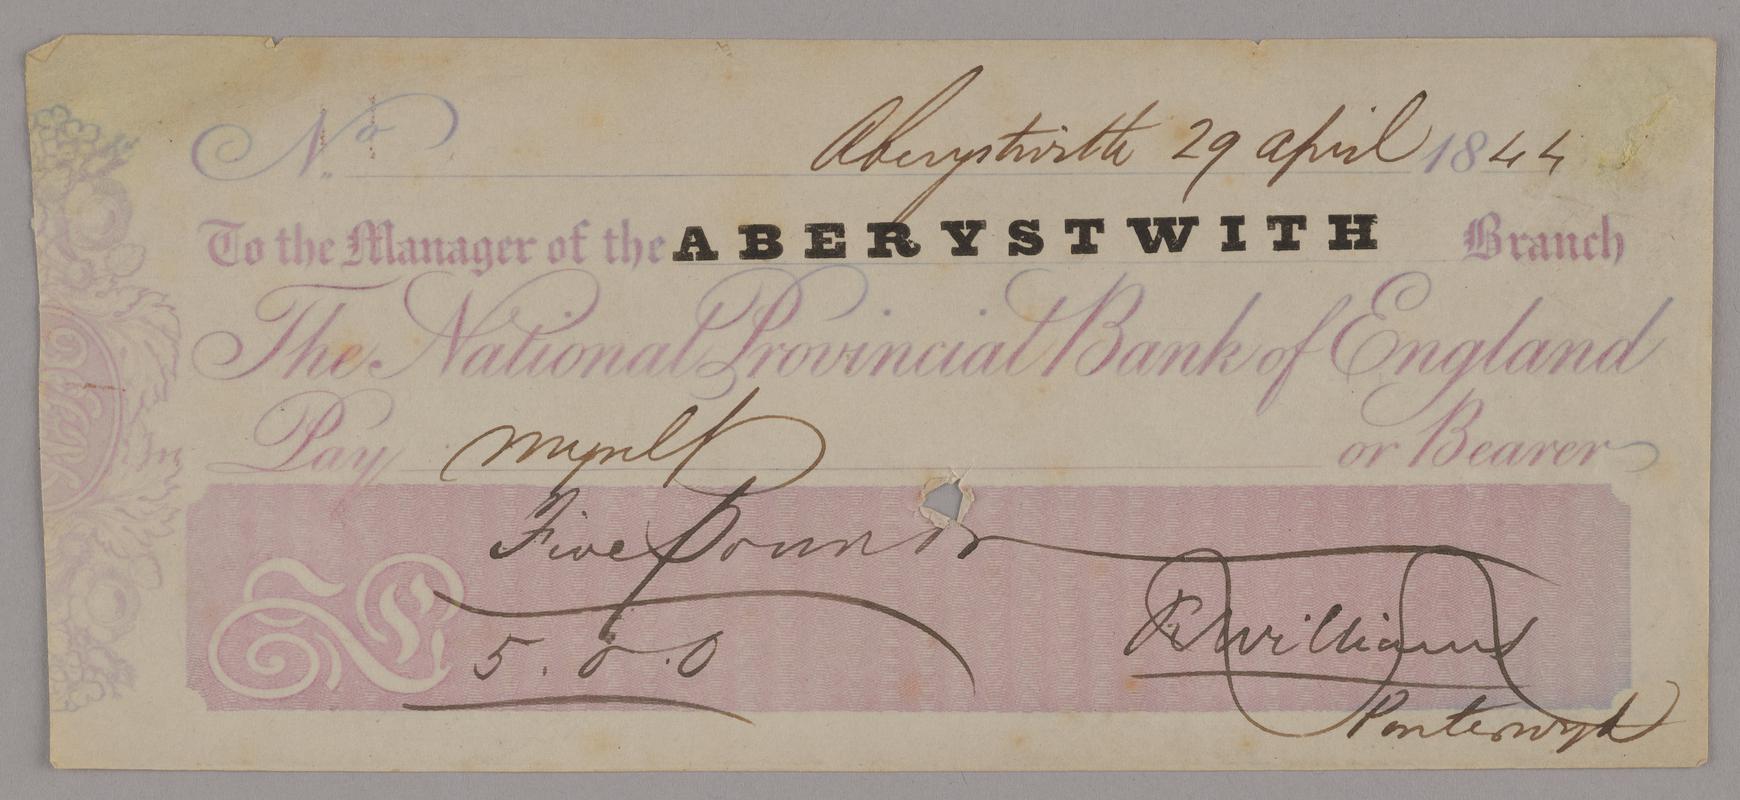 No. Aberystwith 29 april 1844
To the Manager of the ABERYSTWITH Branch
The National Provincial Bank of England
Pay myself or Bearer
Five Pounds
£ 5.0.0 R Williams
Ponterwyd